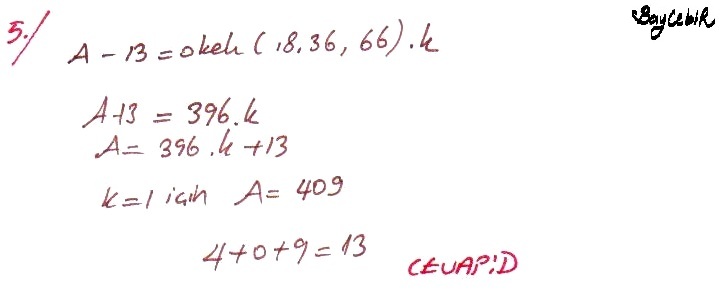 BayCebir
5./
A - 13 = okek (18, 36, 66) . k
A-13 = 396.k
A= 396 .k +13
k=1 için A= 409
4+0+9=13
CEVAP:D